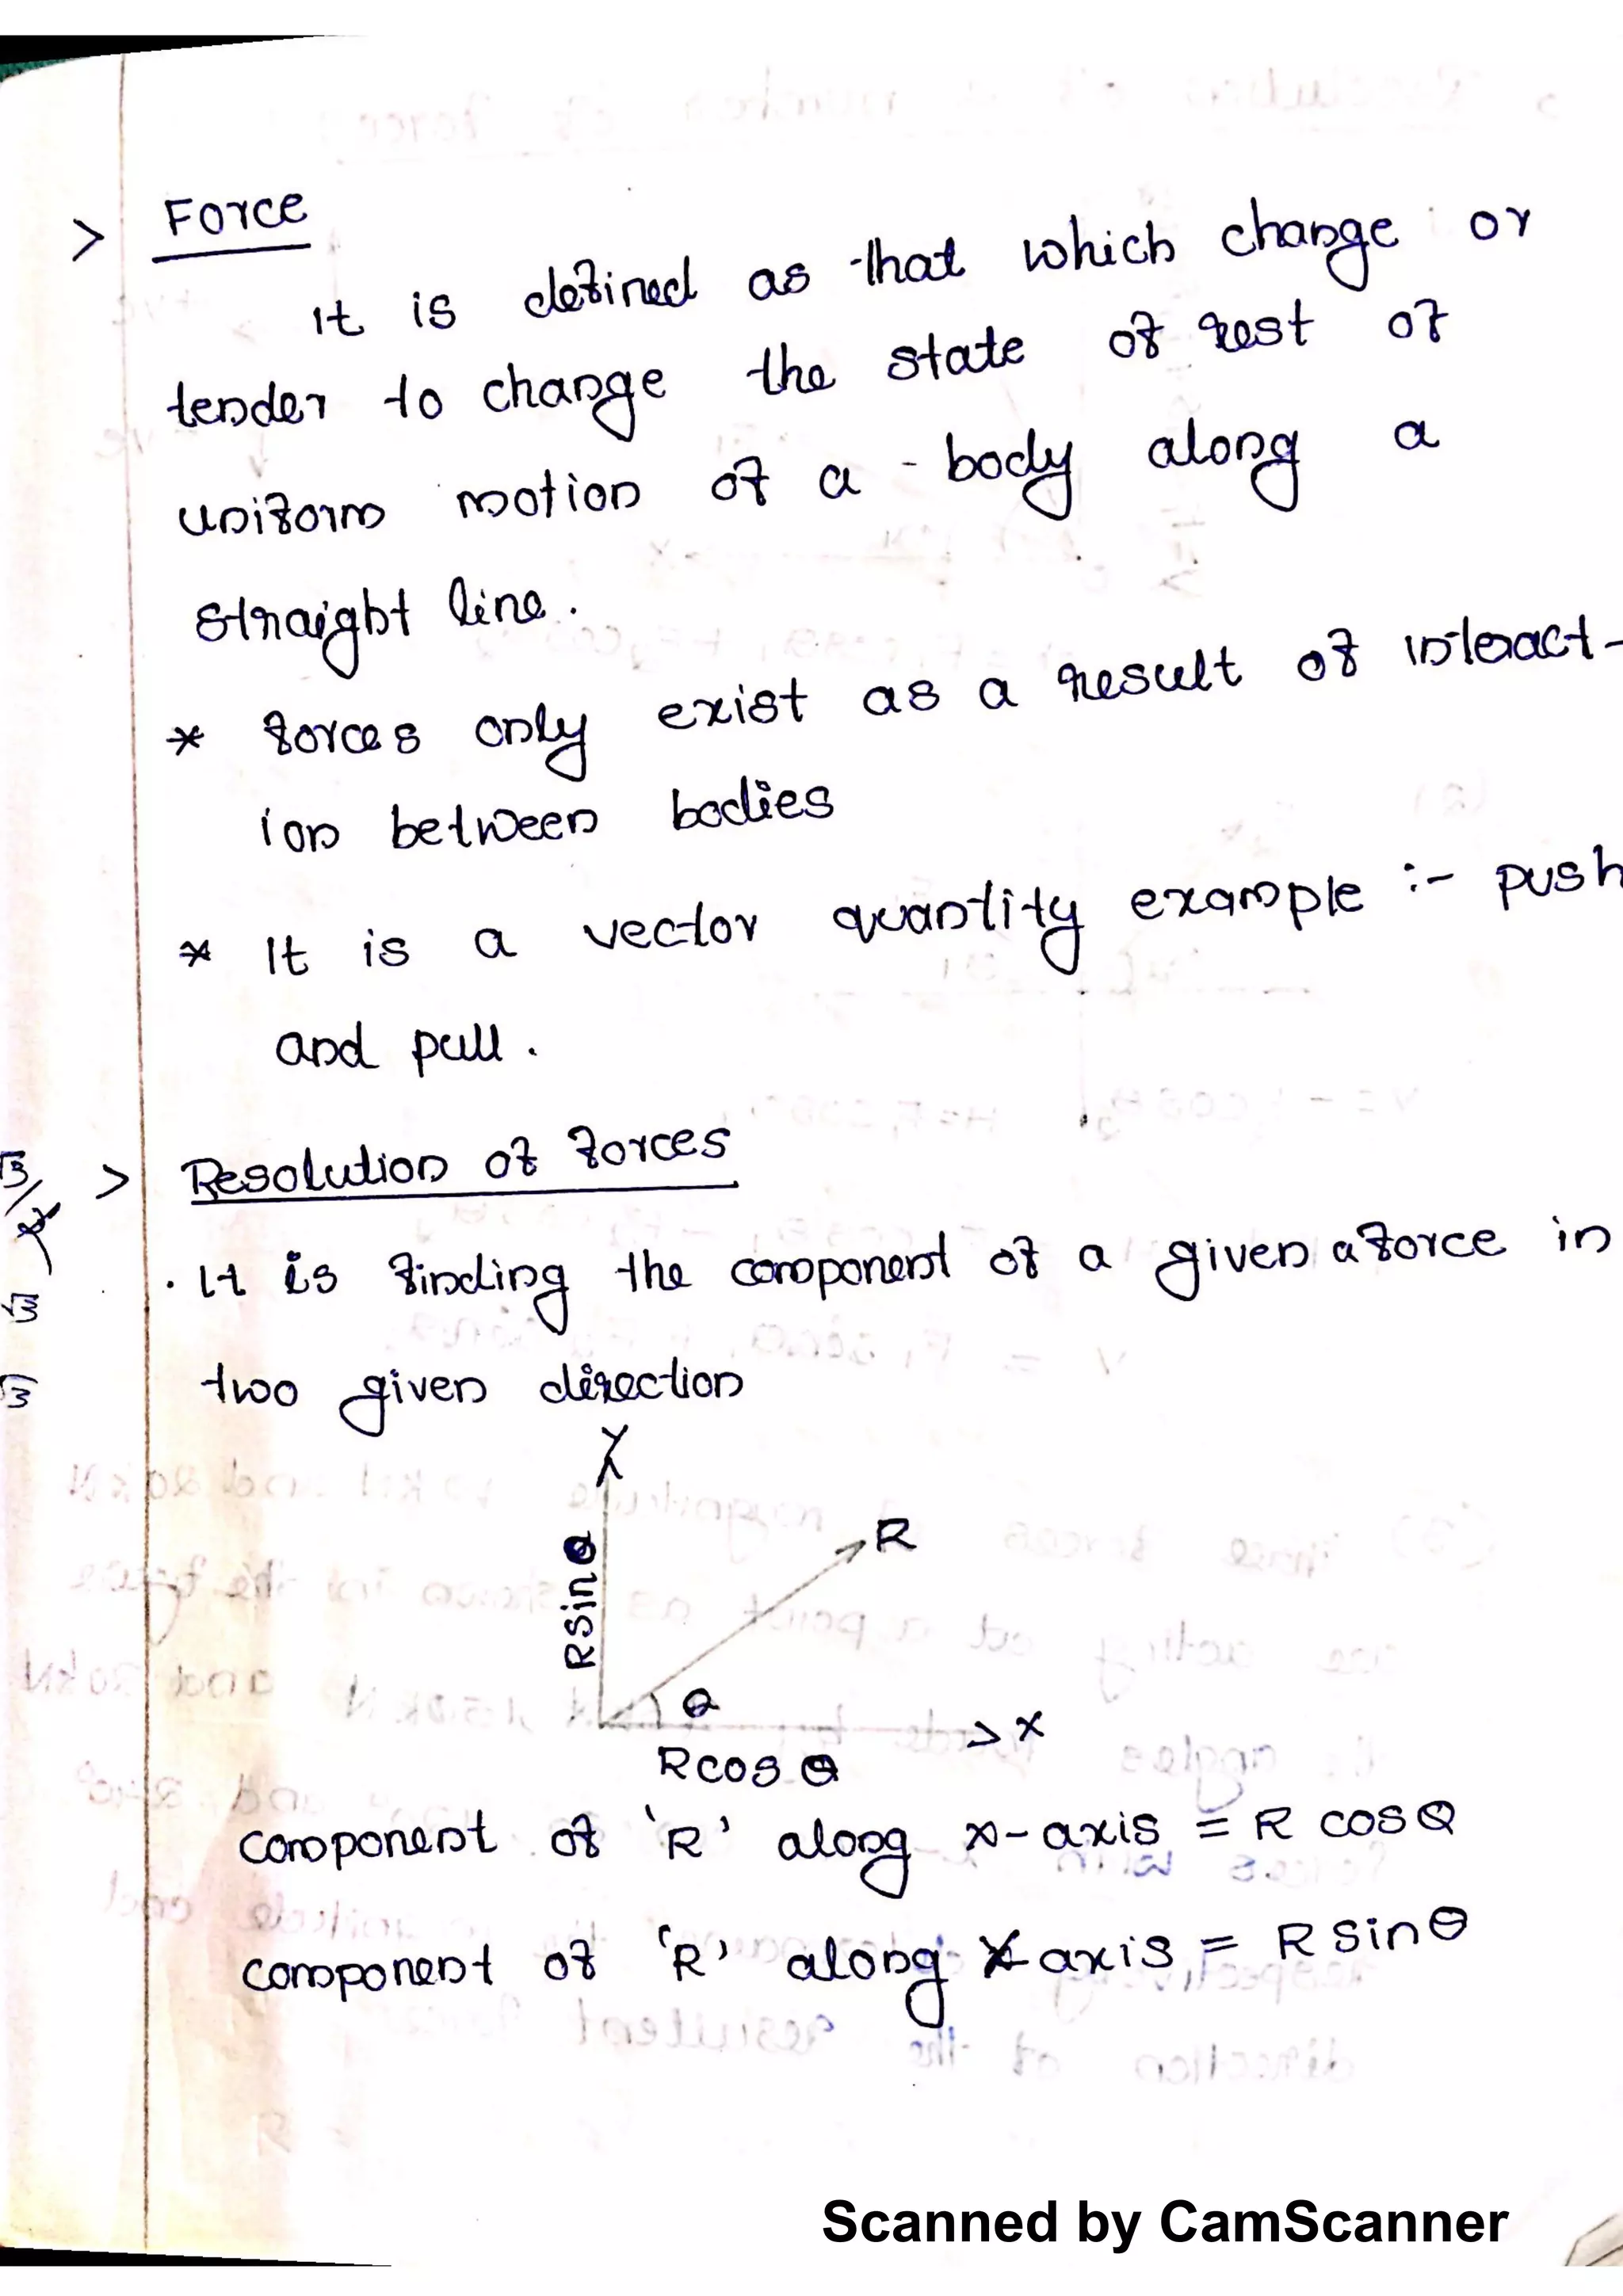 > Force
It is defined as that which change or
tender to change the state of rest of
uniform motion of a body along a
straight line.
* forces only exist as a result of interact-
ion between bodies
* It is a vector quantity example :- push
and pull.
> Resolution of forces
. It is finding the component of a given a force in
two given direction
Y
R
R sin θ
θ
x
R cos θ
component of 'R' along x-axis = R cos θ
component of 'R' along Y axis = R sin θ
Scanned by CamScanner